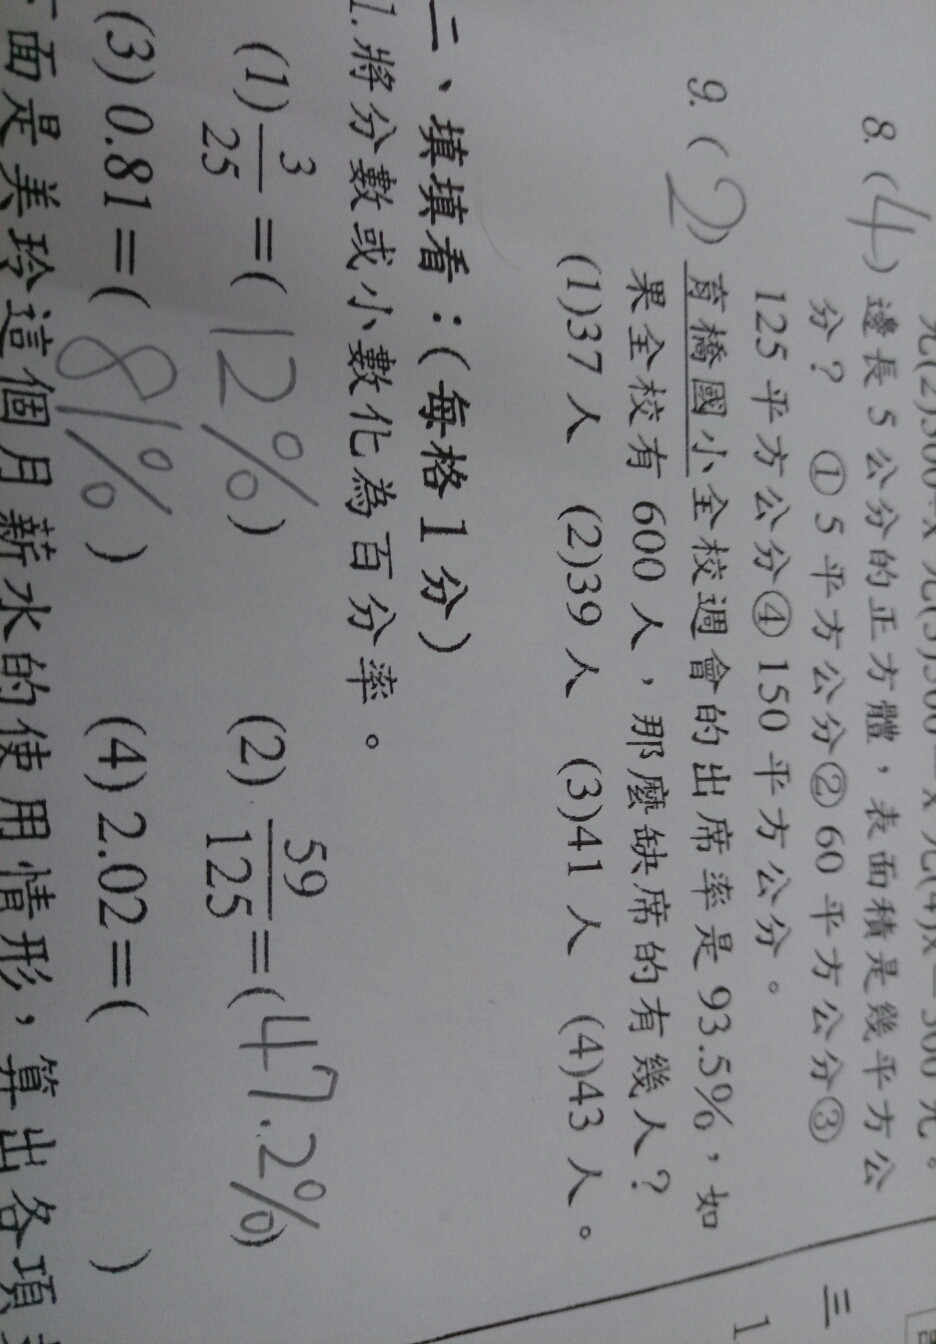 8. (4) 邊長 5 公分的正方體，表面積是幾平方公
分？ ①5 平方公分②60 平方公分③
125 平方公分④150 平方公分。
9. (2) 育橋國小全校週會的出席率是 93.5%，如
果全校有 600 人，那麼缺席的有幾人？
(1)37 人 (2)39 人 (3)41 人 (4)43 人。
二、填填看：(每格 1 分)
1. 將分數或小數化為百分率。
(1) 3/25 =( 12% ) (2) 59/125 =( 47.2% )
(3) 0.81 =( 81% ) (4) 2.02 =( )
面是美玲這個月薪水的使用情形，算出各項
三
1